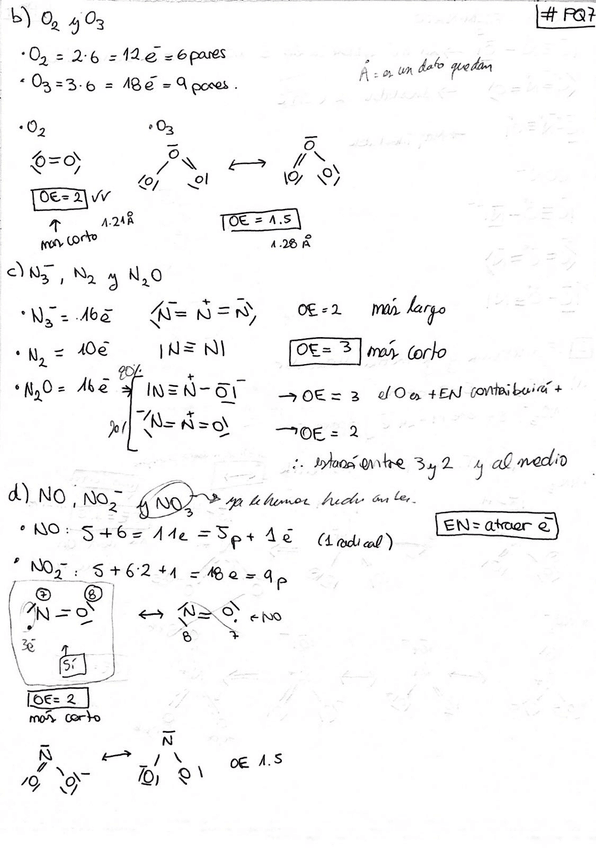 b) O₂ y O₃
# PQ7
• O₂ = 2·6 = 12 e⁻ = 6 pares
• O₃ = 3·6 = 18 e⁻ = 9 pares.
Å = es un dato que dan
• O₂
• O₃
O=O
O
O O
↔
O
O O
OE = 2 ✓✓
1.21 Å
↑
más corto
OE = 1.5
1.28 Å
c) N₃⁻, N₂ y N₂O
• N₃⁻ = 16 e⁻ N⁻ = N⁺ = N⁻ OE = 2 más largo
• N₂ = 10 e⁻ |N≡N| OE = 3 más corto
• N₂O = 16 e⁻ → |N≡N⁺–O|⁻ → OE = 3 el O es +EN contribuirá +
⁻N=N⁺=O → OE = 2
∴ estará entre 3 y 2 y al medio
d) NO, NO₂⁻ y NO₃⁻ → ya lo hemos hecho antes.
• NO: 5 + 6 = 11e = 5p + 1 e⁻ (1 radical)
EN = atraer e⁻
• NO₂⁻: 5 + 6·2 + 1 = 18 e = 9p
7 8
N = O ↔ N = O ← NO
8 7
3e⁻
↑
Sí
OE = 2
más corto
N
O O⁻
↔
N
O O
OE 1.5